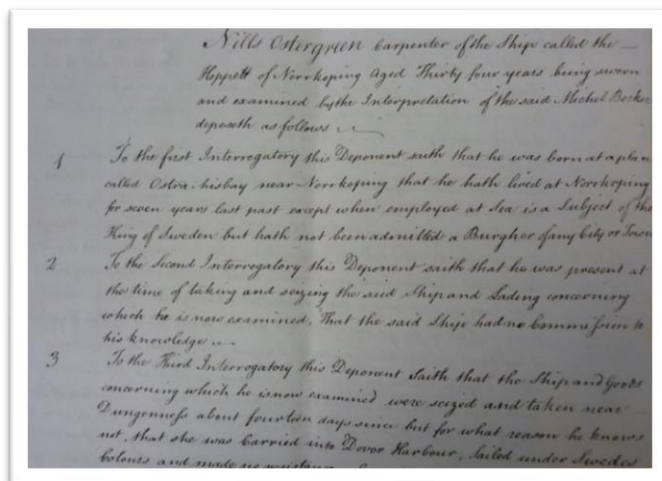 Nills Ostergreen Carpenter of the Ship called the
Hoppett of Norrkoping Aged Thirty four years being sworn
and examined by the Interpretation of the said Michel Becker
deposeth as follows
1 To the first Interrogatory this Deponent saith that he was born at a place
called Ostra-hisbay near Norrkoping that he hath lived at Norrkoping
for seven years last past except when employed at Sea is a Subject of the
King of Sweden but hath not been admitted a Burgher of any City or Town
2 To the Second Interrogatory this Deponent saith that he was present at
the time of taking and seizing the said Ship and Lading concerning
which he is now examined, That the said Ship had no Commission to
his knowledge
3 To the Third Interrogatory this Deponent Saith that the Ship and Goods
concerning which he is now examined were seized and taken near
Dungenness about fourteen days since but for what reason he knows
not, that she was Carried into Dover Harbour, Sailed under Swedes
Colours and made no resistance